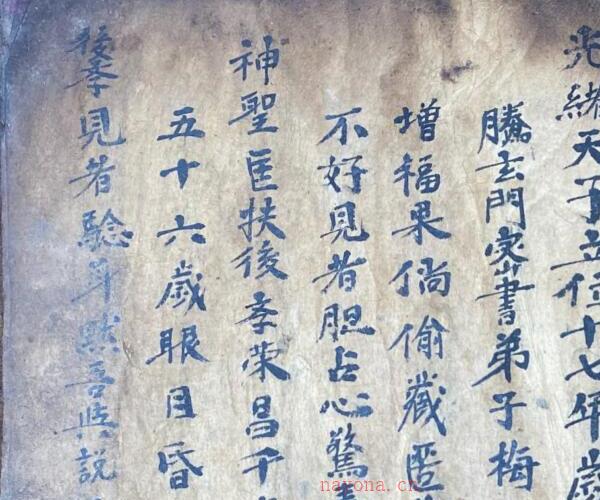 光緒天子立位十七年歲
騰玄門密書弟子梅
增福果倘偷藏匿
不好見者胆占心驚
神聖匡扶後孝荣昌千
五十六歲眼目昏
後孝見者驗
吾
説
nayona.cn